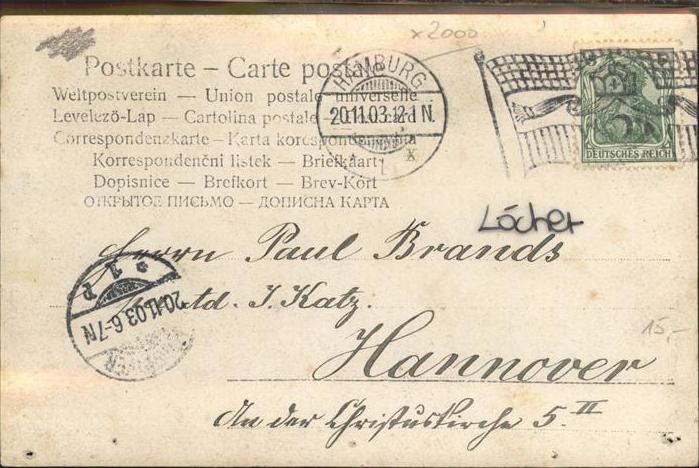 x2000
Postkarte – Carte postale
Weltpostverein — Union postale universelle
Levelező-Lap — Cartolina postale
Correspondenzkarte – Karta korespondencyjna
Korrespondenční listek — Briefkaart
Dopisnice — Brefkort — Brev-Kort
ОТКРЫТОЕ ПИСЬМО — ДОПИСНА КАРТА
HAMBURG
20.11.03.12-1N.
1
x
DEUTSCHES REICH
Löcher
Herrn Paul Brands
J. Katz.
Hannover
An der Christuskirche 5. II
15,-
1 P
20.11.03.6-7N